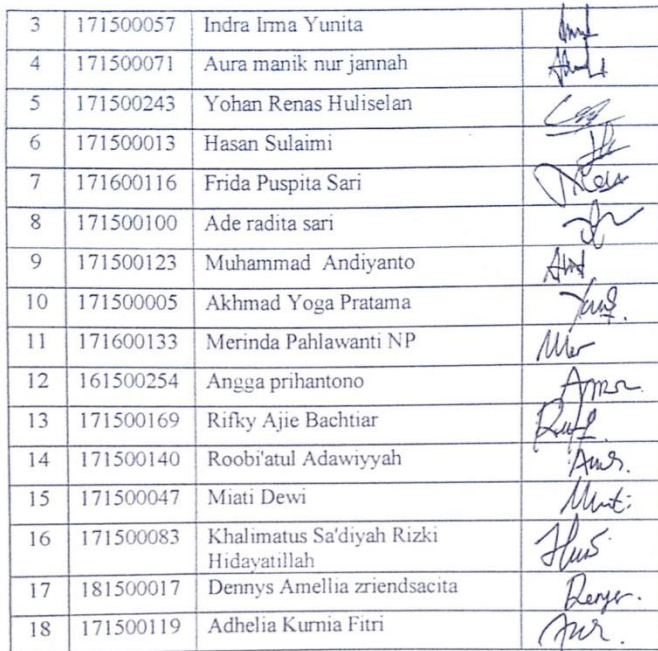 3 171500057 Indra Irma Yunita
4 171500071 Aura manik nur jannah
5 171500243 Yohan Renas Huliselan
6 171500013 Hasan Sulaimi
7 171600116 Frida Puspita Sari
8 171500100 Ade radita sari
9 171500123 Muhammad Andiyanto
10 171500005 Akhmad Yoga Pratama
11 171600133 Merinda Pahlawanti NP
12 161500254 Angga prihantono
13 171500169 Rifky Ajie Bachtiar
14 171500140 Roobi'atul Adawiyyah
15 171500047 Miati Dewi
16 171500083 Khalimatus Sa'diyah Rizki
Hidayatillah
17 181500017 Dennys Amellia zriendsacita
18 171500119 Adhelia Kurnia Fitri